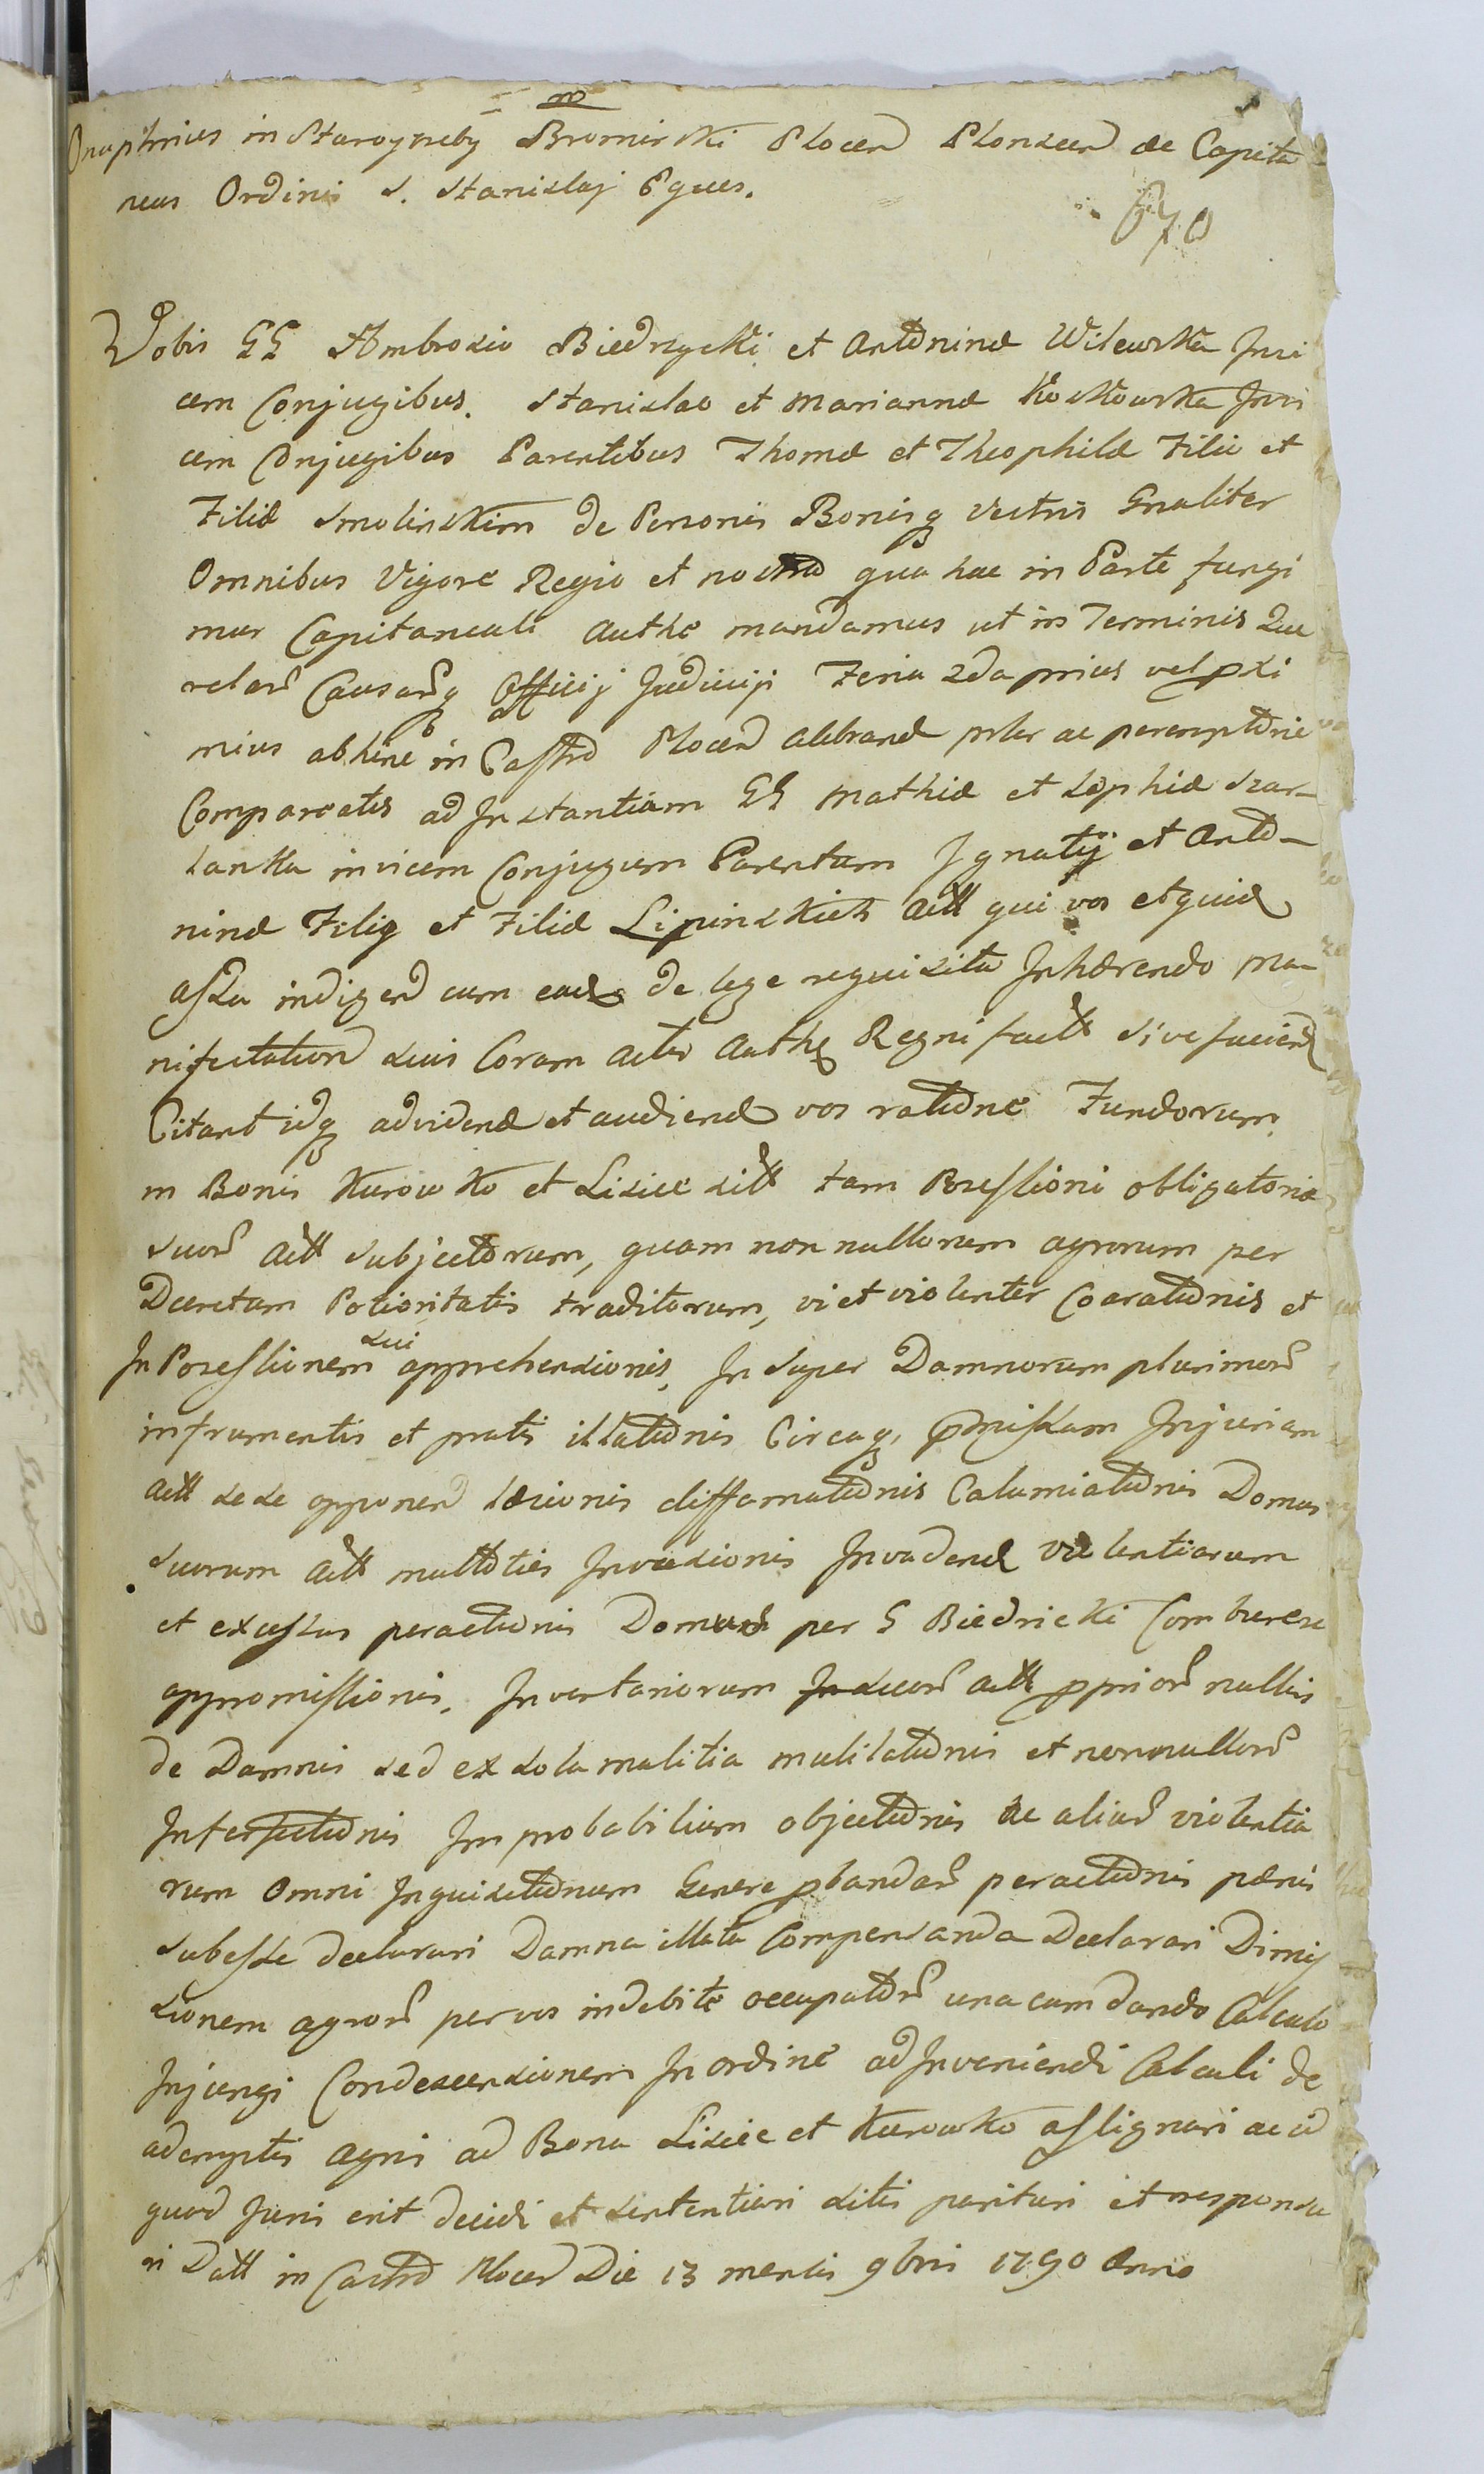 Onuphrius in Starogrzeby Bromirski Plocen Plonscen &c Capita
neus Ordinis S. Stanislaj Eques.
670
Vobis GG Ambrosio Biedrzycki et Antoninæ Wilewska Invi
cem Conjugibus. Stanislao et Mariannæ Koskowska Invi
cem Conjugibus Parentibus Thomæ et Theophilæ Filio et
Filiæ Smolinskim de Personis Bonisq vestris Gnaliter
Omnibus Vigore Regio et nostra qua hac in Parte fungi
mur Capitaneali Authe mandamus ut in Terminis Que
relar Causarq Officij Judicij Feria 2da prius vel pxi
mius abhinc in Castro Plocen celebrand pslr ac peremptorie
Compareatis ad Instantiam GG Mathiæ et Sophiæ Szar-
lanka invicem Conjugum Parentum Ignatij et Anto-
ninæ Filiy et Filiæ Lipinskich Actt qui vos et quid
assa indigend cum ead de lege requisita Inhærendo ma-
nifestation suis Coram actis Auth Regni factt sive faciend
Citant idq advidend et audiend vos ratione Fundorum
in Bonis Kurowko et Lisice sitt tam Possessioni obligatoriæ
suor Actt subjectorum, quam non nullorum agrorum per
Decretum Potioritatis traditorum, vi et violenter Coarationis et
In Possessionem sui apprehensionis, In super Damnorum plurimor
in frumentis et pratis illationis Circaq, pmissam Injuriam
Actt sese opponen læsionis diffamationis Calumiationis Domus
suorum Actt multoties Invasionis Invadend violentiarum
et excessus peractionis Domum per G Biedricki Comburere
appromissionis. Inventariorum suor Actt pprior nullis
de Damnis sed ex sola malitia mutilationis et nonnullor
Interfectionis Improbabilium objectionis ac aliar violentia
rum Omni Inquisitionum Genere pbandar peractionis pænis
subesse declarari Damna illata Compensanda Declarari Dimis
sionem agror per vos indebite occupator una cum dando Calculo
Injungi Condescensionem In ordine ad Inveniendi Calculi de
ademptis agris ad Bona Lisice et Kurowko assignari ac id
quod Juris erit decidi et sententiari sitis parituri et responsu
ri Datt in Castro Plocen Die 13 mensis 9bris 1790 Anno